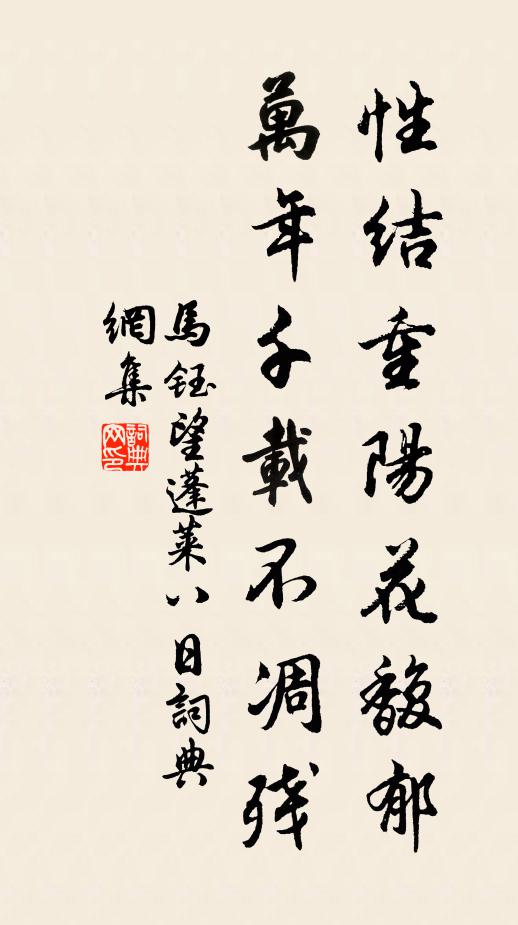 性結重陽花馥郁
萬年千載不凋殘
馬鈺望蓬萊八日詞典
網集
詞典
网印